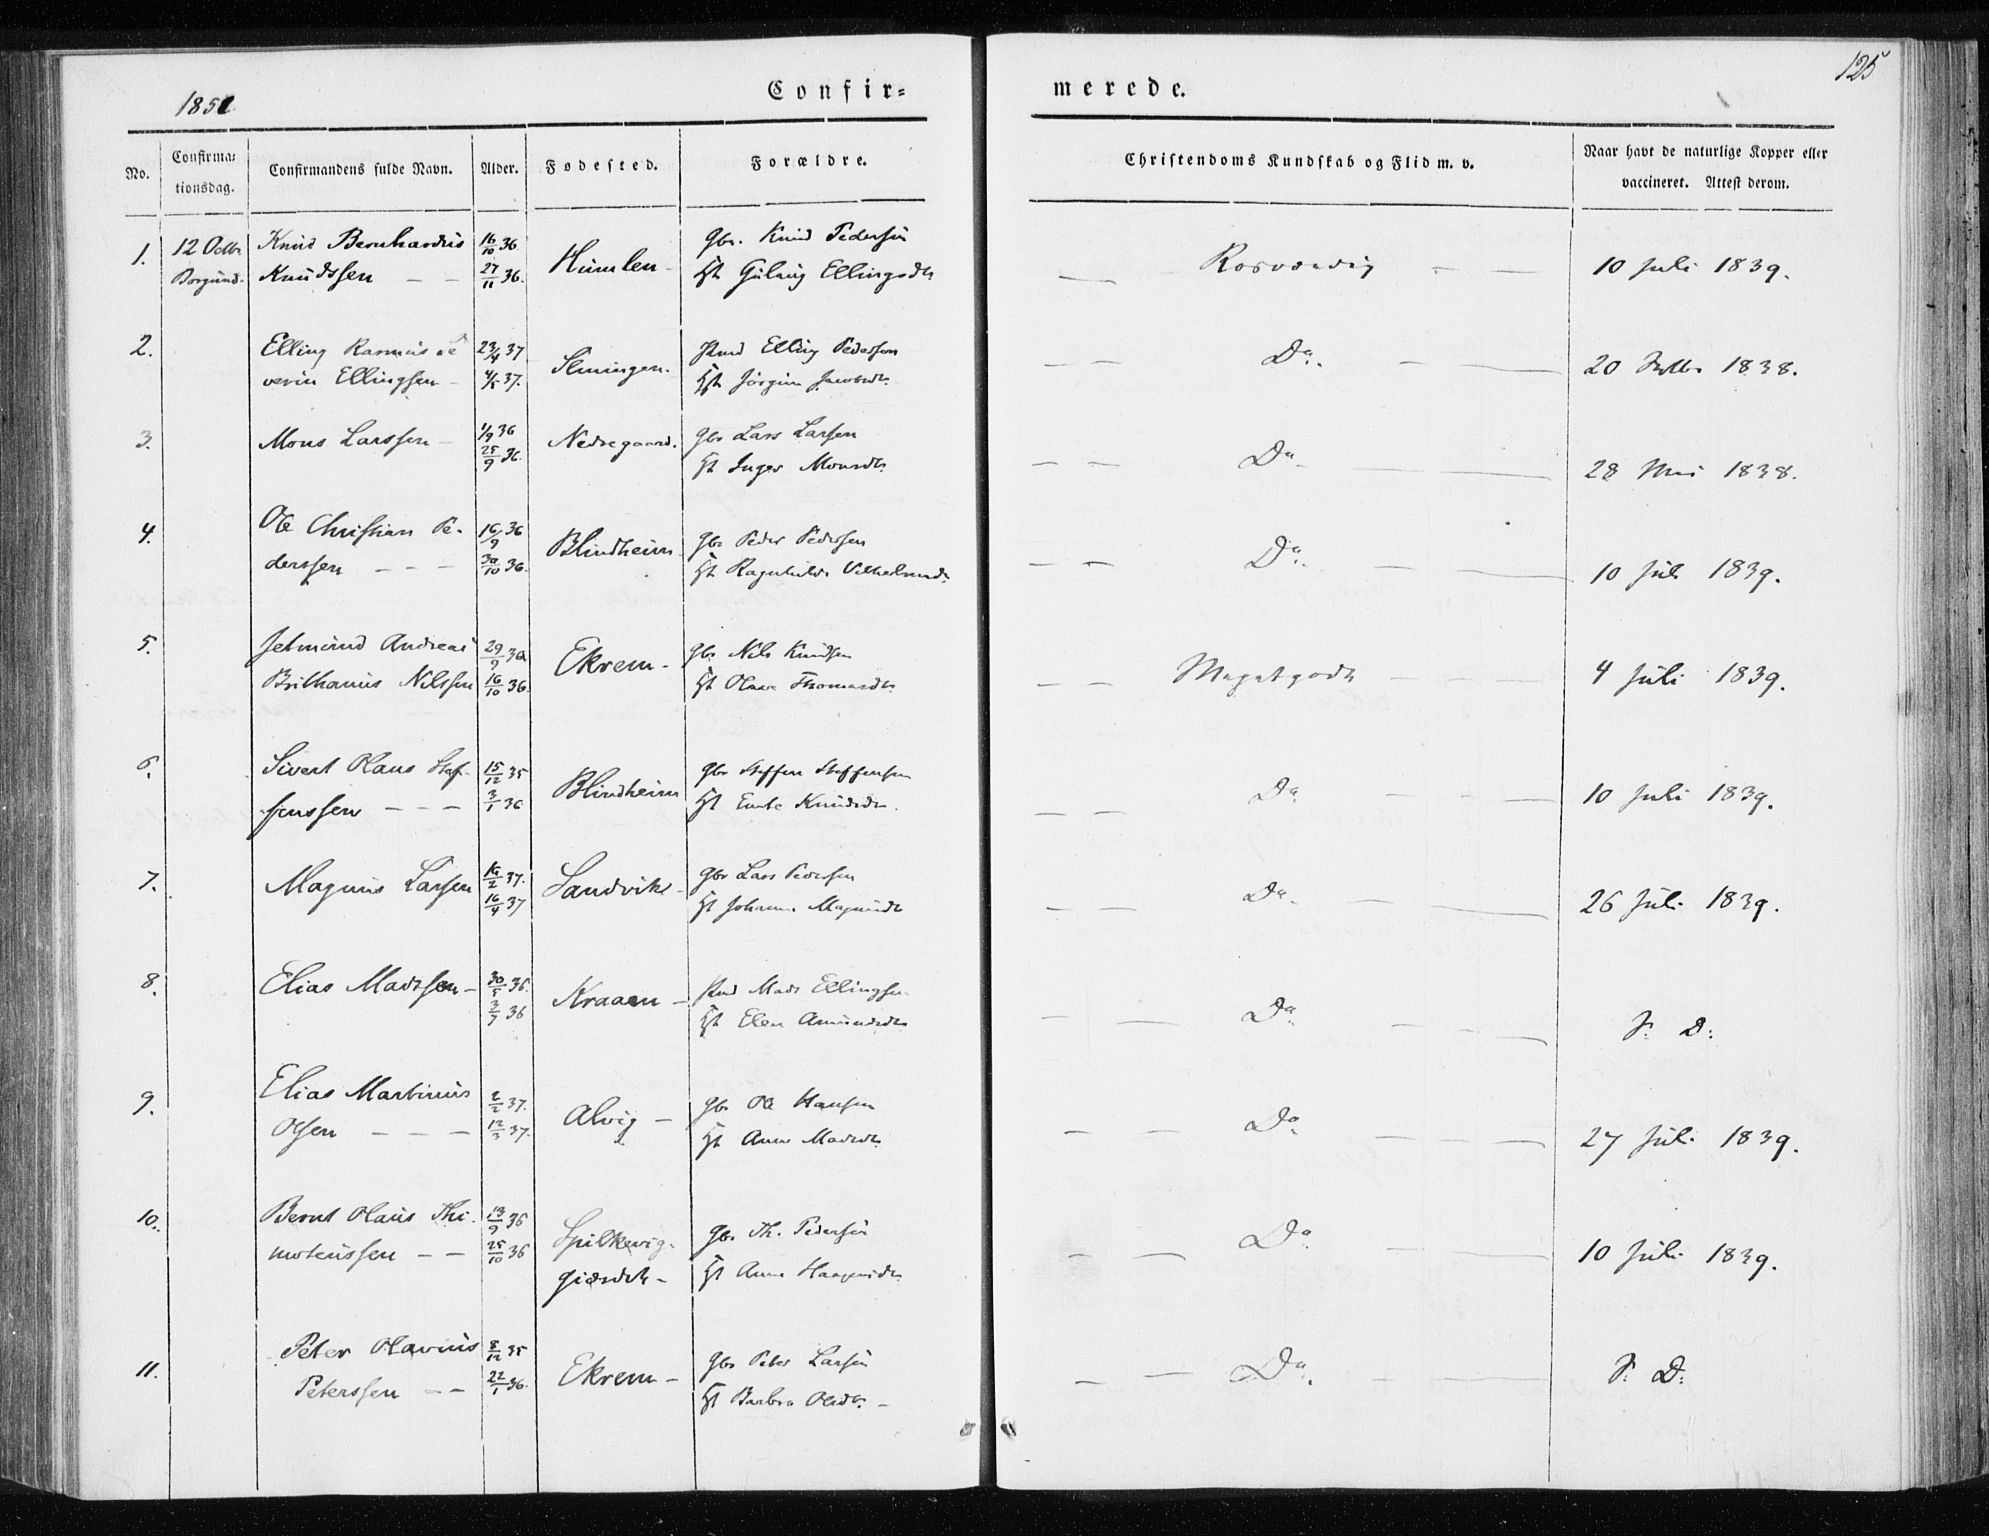 125
1851
Confir=
merede.
No.
Confirma=
tionsdag.
Confirmandens fulde Navn.
Alder.
Fødested.
Forældre.
Christendoms Kundskab og Flid m. v.
Naar havt de naturlige Kopper eller
vaccineret. Attest derom.
1. 12 Octbr Knud Bernhardus 16/10 36 Humlen - Gbr. Knud Pedersen
Borgund. Knudssen - - 27/11 36. Gulaug Ellingsdtr
- - Rosværdig - - 10 Juli 1839.
2. Elling Rasmus Se 23/4 37 Slinningen. Elling Pedersen
verin Ellingsen - 4/5 37. Jørgine Jacobsdtr
- - Do. - - 20 1838.
3. Mons Larssen - 1/9 36 Nedregaard. Gbr Lars Larsen
25/9 36. Inger Monsdtr
- - Do - - 28 Mai 1838.
4. Ole Christian Pe- 16/9 36 Blindheim Gbr Peder Pedersen
derssen - - - 30/10 36. Ragnhilde
- - Do. - - 10 Juli 1839.
5. Jetmund Andreas 29/9 36 Ekrem - Gbr Nils Knudsen
Brithanus Nilssen 16/10 36. Olave Thomasdtr
- - Megetgodt - - - 4 Juli 1839.
6. Sivert Olaus Stef- 15/12 35 Blindheim Gbr Steffen Steffensen
fenssen - - - 3/1 36 Knudsdtr.
- - Do. - - - 10 Juli 1839.
7. Magnus Larsen 16/2 37. Sandvik - Gbr Lars Pedersen
16/4 37 Johanne Magnusdtr
- - Do. - - 26 Juli 1839.
8. Elias Madssen - 30/5 36. Kraaen - Mads Ellingsen
3/7 36 Elen Amundsdtr
- - Do. - - S: D:
9. Elias Martinus 2/2 37. Alvig - Gbr Ole Hansen
Olsen - - - 12/3 37. Anne Madsdtr.
- - Do. - - 27 Juli 1839.
10. Bernt Olaus Thi- 13/9 36 Spilkevig- Gbr Th. Pedersen
moteussen - - 25/10 36 giærdet - Anne
- - Do. - - 10 Juli 1839.
11. Peter Olavius 8/12 35 Ekrem - Gbr Peter Larsen
Peterssen - - 22/1 36. Barbro Olsdtr. -
- - Do. - - S: D: